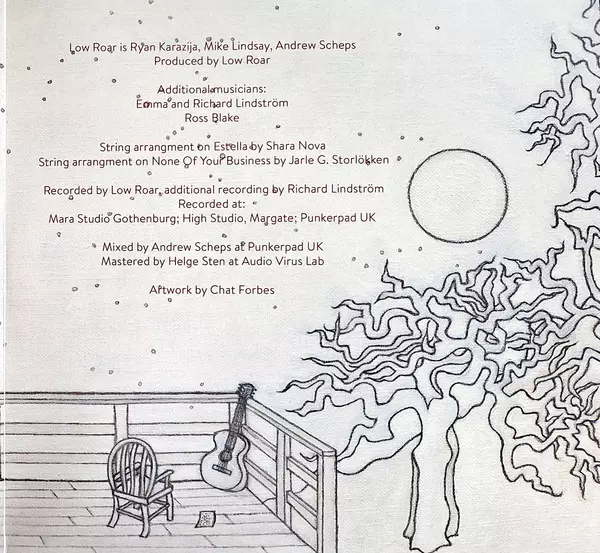 Low Roar is Ryan Karazija, Mike Lindsay, Andrew Scheps
Produced by Low Roar
Additional musicians:
Emma and Richard Lindström
Ross Blake
String arrangment on Estella by Shara Nova
String arrangment on None Of Your Business by Jarle G. Storløkken
Recorded by Low Roar, additional recording by Richard Lindström
Recorded at:
Mara Studio Gothenburg; High Studio, Margate; Punkerpad UK
Mixed by Andrew Scheps at Punkerpad UK
Mastered by Helge Sten at Audio Virus Lab
Artwork by Chat Forbes